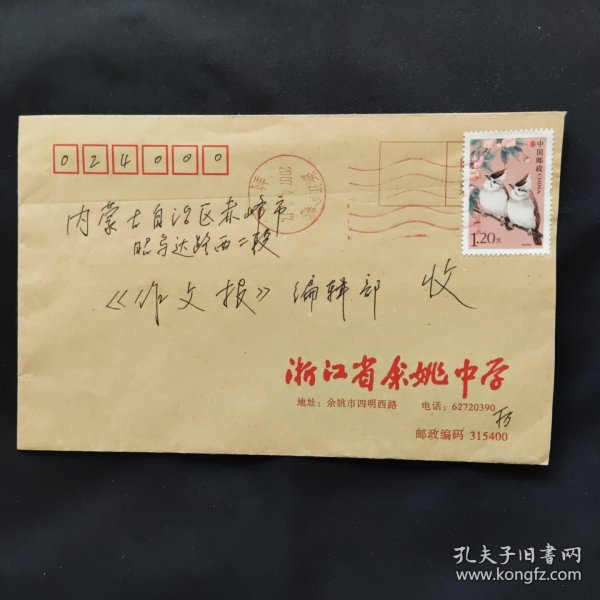 024000
中国邮政 CHINA
1.20元
内蒙古自治区赤峰市
昭乌达路西二段
《作文报》编辑部 收
浙江省余姚中学
地址：余姚市四明西路 电话：62720390
邮政编码 315400
孔夫子旧书网
www.kongfz.com